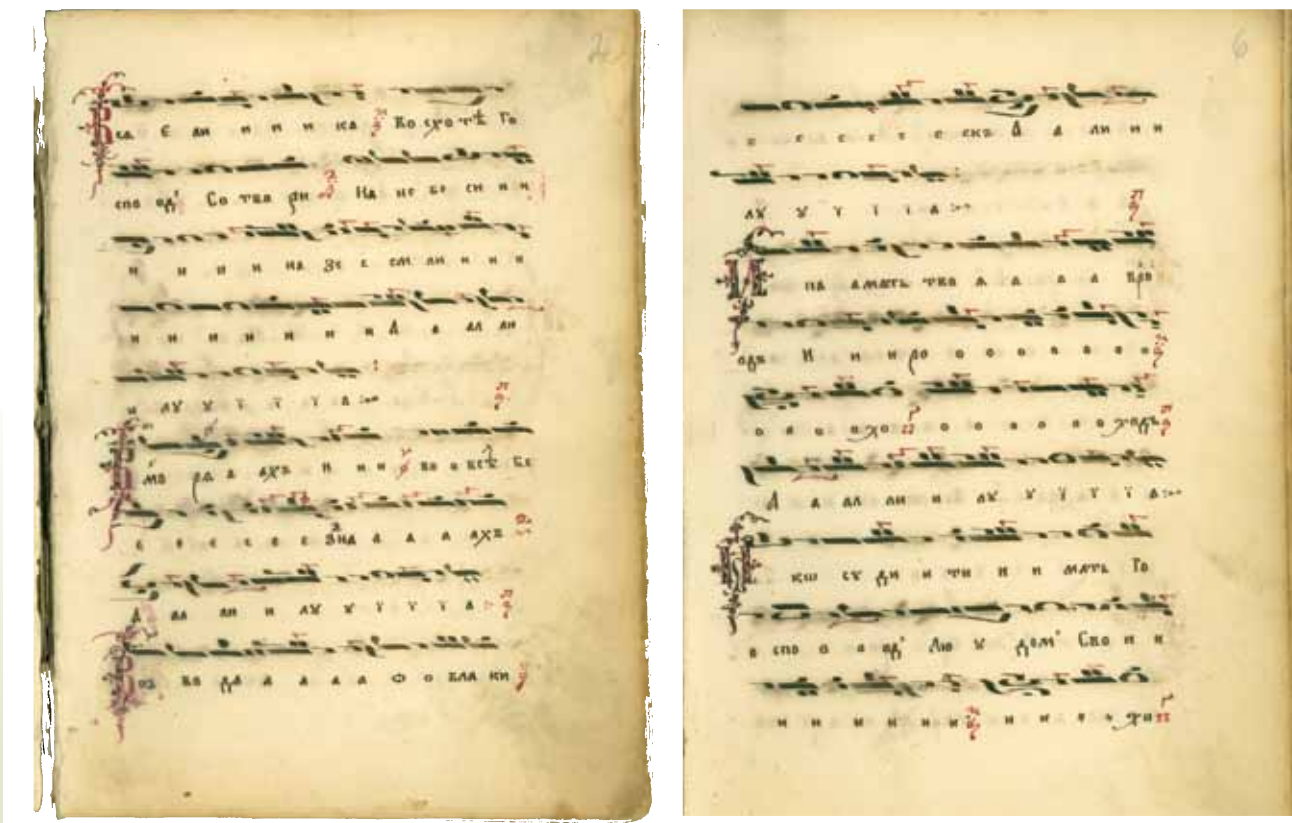 2
Вса е ли и и и ка Во схо тѣ Го
спо одⷭ҇ Со тво ри На не бе си и и
и и и и на Зе е ем ли и и и
и и и и и и и А а ал ли
и лу у у ї ї ї а
мо ра а ахъ и и и во о все Бе
е е е е е е Зна а а а ахъ
А ал ли и лу у у ї ї ї а
Воз во да а а а а Ѡ о бла ки
6
е е е е е скъ А а ли и и
лу у у ї ї ї а
И па амать тво а а а а Гов
одь И и и ро о о о о о о о
о о о охо о о о о о о одъ
А а ал ли и и лу у у ї ї а
Ꙗ кѡ су ди и ти и и мать Го
о спо о о одⷭ҇ Лю у демъ Сво и и
и и и и и и и